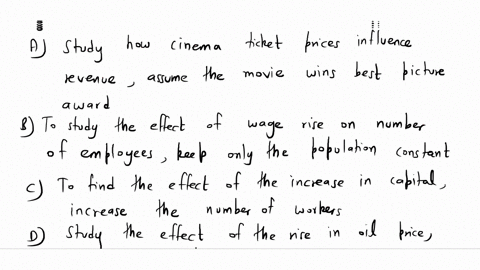 A) Study how cinema ticket prices influence
revenue, assume the movie wins best picture
award
B) To study the effect of wage rise on number
of employees, keep only the population constant
C) To find the effect of the increase in capital,
increase the number of workers
D) Study the effect of the rise in oil price,